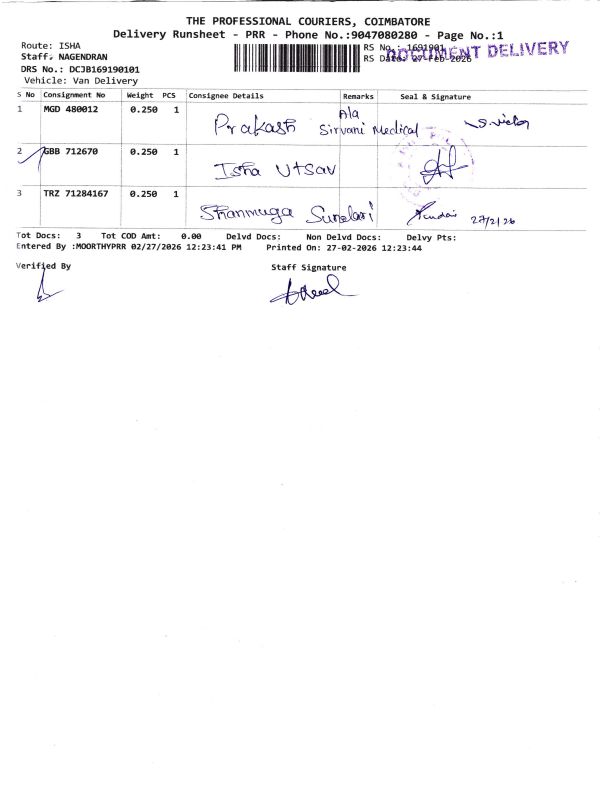 THE PROFESSIONAL COURIERS, COIMBATORE
Delivery Runsheet - PRR - Phone No.:9047080280 - Page No.:1
Route: ISHA
RS No.: 1691901
Staff: NAGENDRAN
RS Date: 27-Feb-2026
DOCUMENT DELIVERY
DRS No.: DCJB169190101
Vehicle: Van Delivery
S No Consignment No Weight PCS Consignee Details Remarks Seal & Signature
1 MGD 480012 0.250 1 Prakash Ala Sirvani Medical
2 GBB 712670 0.250 1 Isha Utsav
3 TRZ 71284167 0.250 1 Shanmuga Sundari 27/2/26
Tot Docs: 3 Tot COD Amt: 0.00 Delvd Docs: Non Delvd Docs: Delvy Pts:
Entered By :MOORTHYPRR 02/27/2026 12:23:41 PM Printed On: 27-02-2026 12:23:44
Verified By Staff Signature